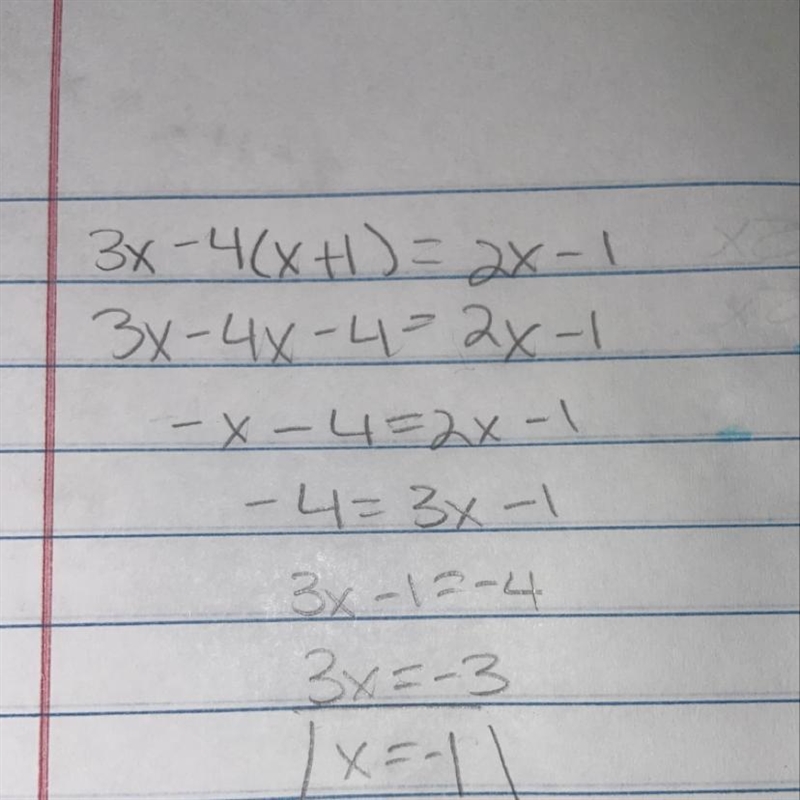 3x - 4(x+1) = 2x - 1
3x - 4x - 4 = 2x - 1
-x - 4 = 2x - 1
-4 = 3x - 1
3x - 1 = -4
3x = -3
x = -1